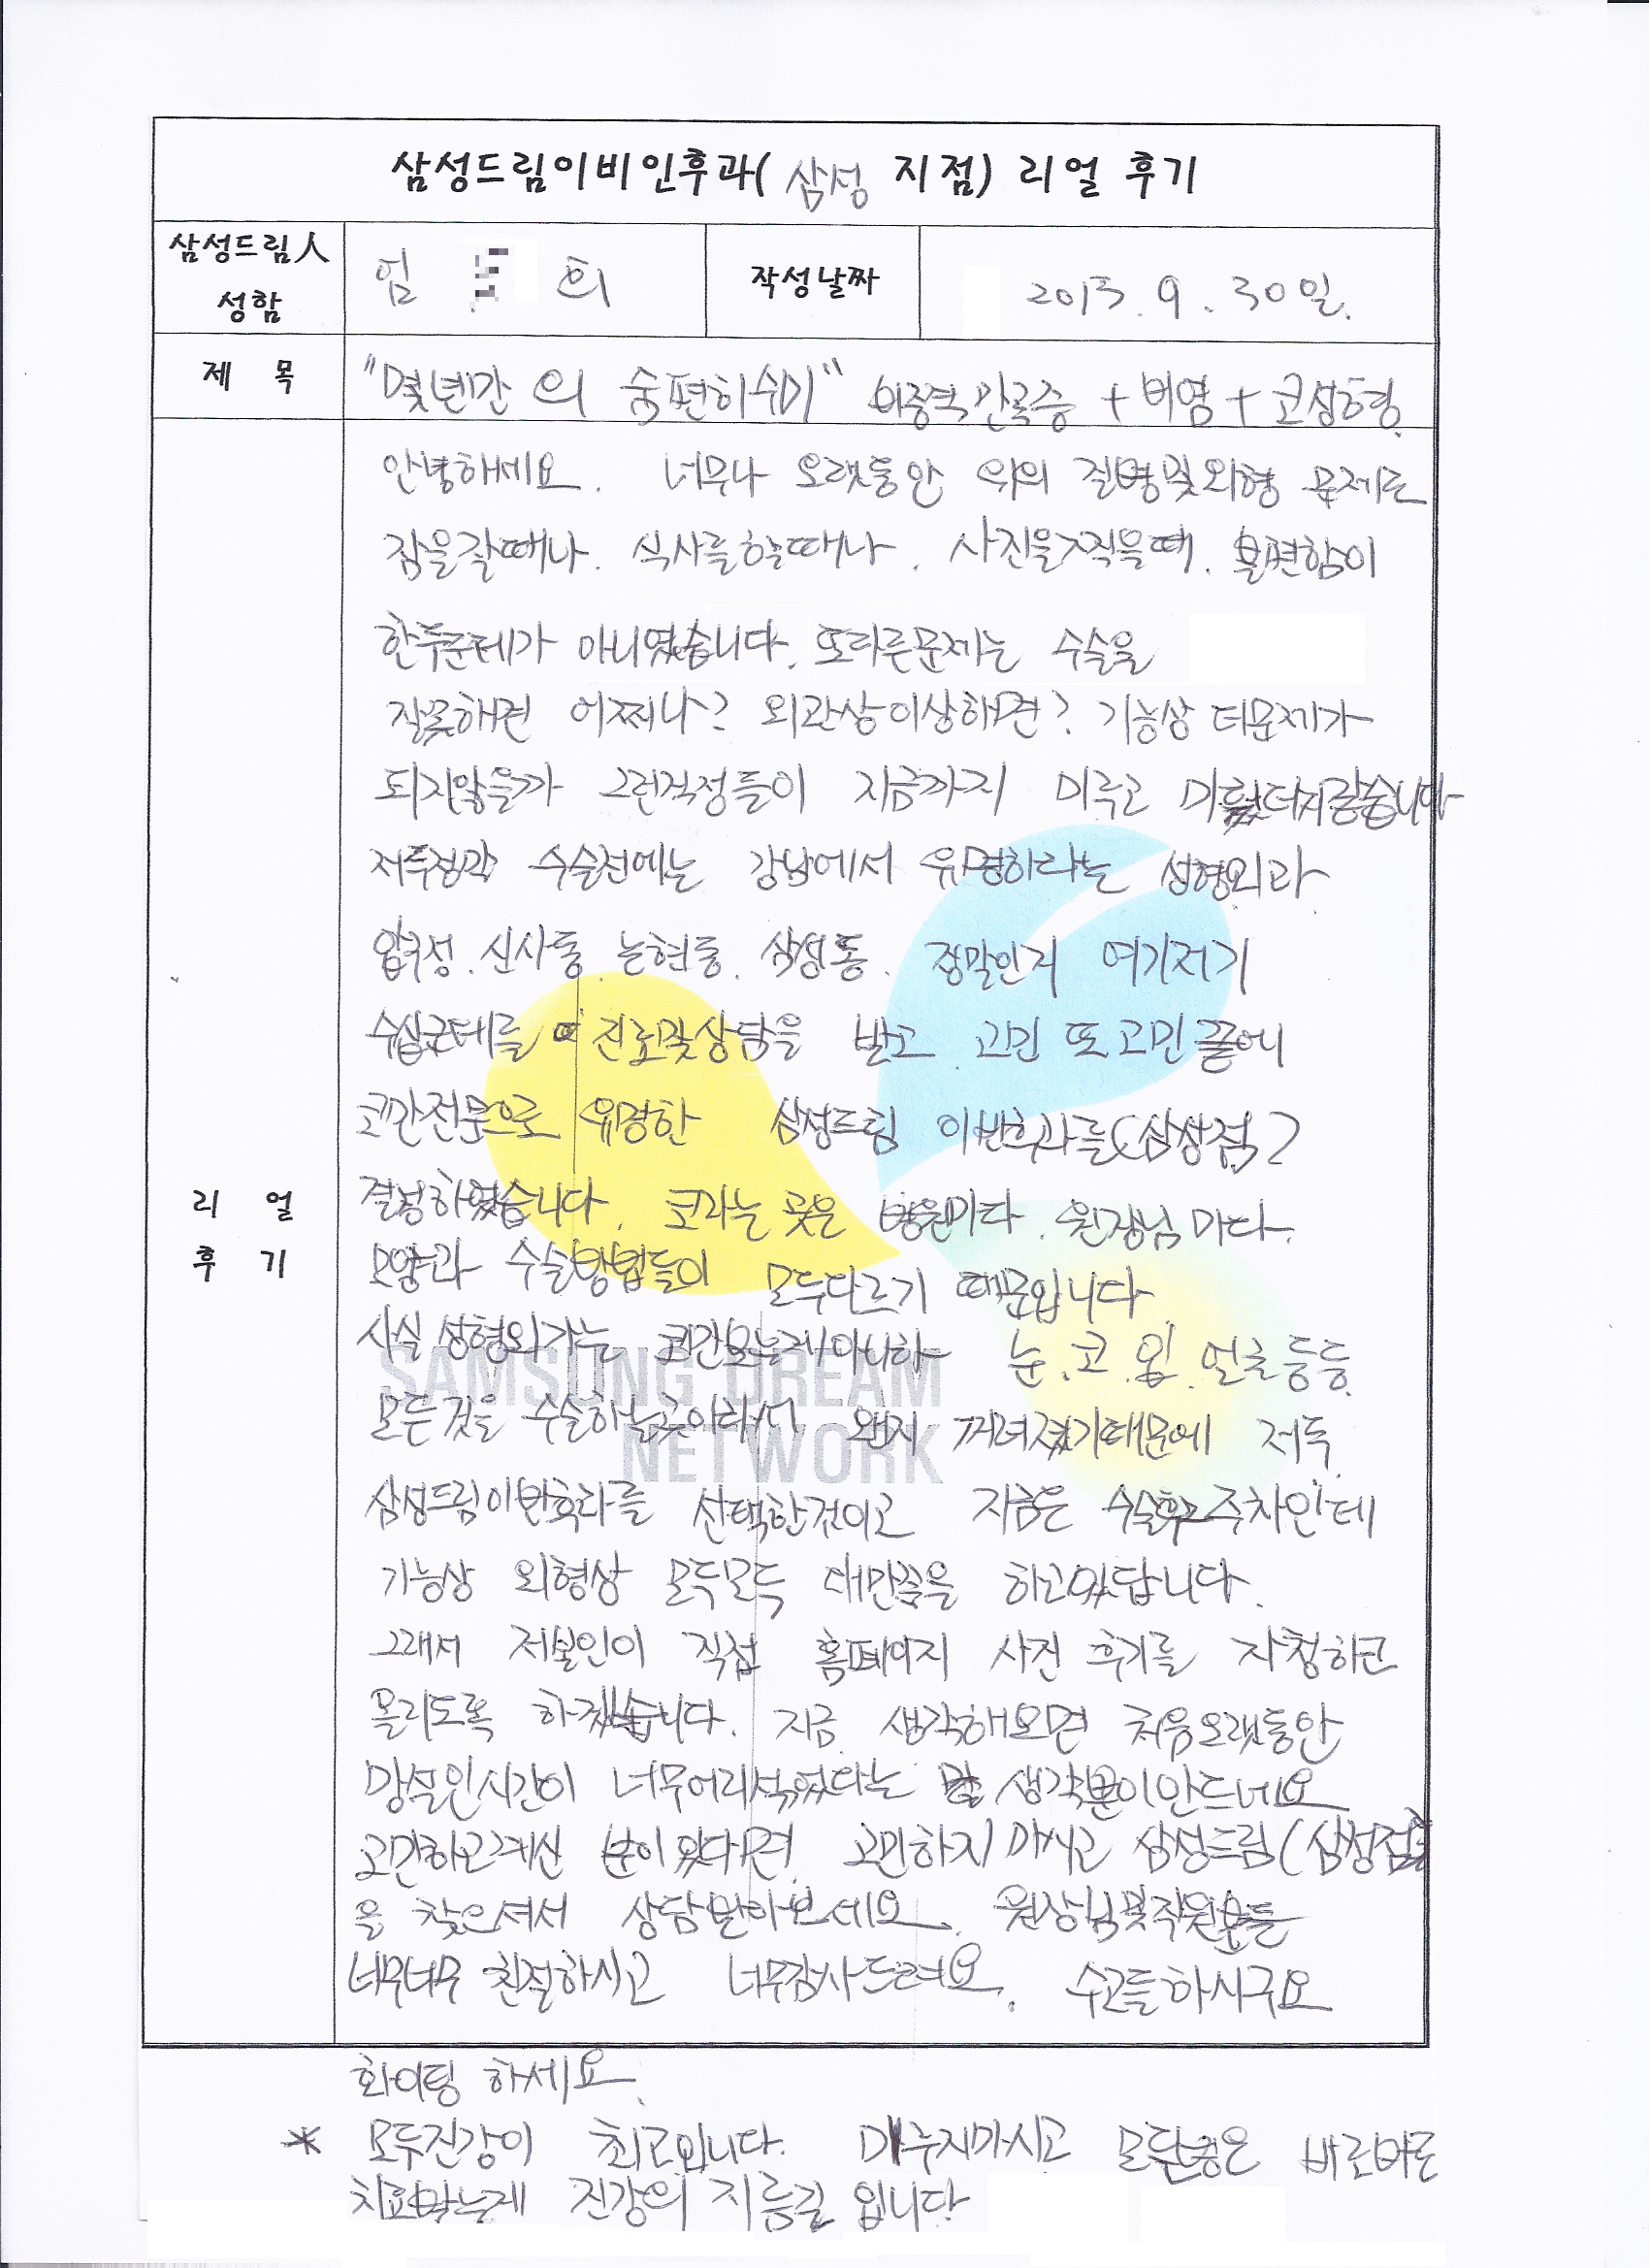 삼성드림이비인후과( 삼성 지점) 리얼 후기
삼성드림人 성함 엄 희 작성날짜 2013. 9. 30일.
제 목 "몇년간의 숨편히쉬기" 비중격만곡증 + 비염 + 코성형.
리 얼 후 기
안녕하세요. 너무나 오랫동안 위의 질병및외형 문제로
잠을잘때나. 식사를할때나. 사진을찍을때. 불편함이
한두군데가 아니였습니다. 또다른문제는 수술을
잘못해면 어쩌나? 외관상이상해면? 기능상 더문제가
되지않을까 그런걱정들이 지금까지 미루고
저두정작 수술전에는 강남에서 유명하다는 성형외과
압구정. 신사동. 논현동. 삼성동. 정말인지 여기저기
수십군데를 진료및상담을 받고 고민 또 고민끝에
코만전문으로 유명한 삼성드림 이빈후과를(삼성점)
결정하였습니다. 코라는 곳은 병원마다. 원장님마다.
모양과 수술방법들이 모두다르기 때문입니다
사실 성형외가는 코만보는게아니라 눈.코.입. 얼굴등등
모든것을 수술하는곳이라서 왠지 꺼려졌기때문에 저두
삼성드림이빈후과를 선택한것이고 지금은 수술후2주차인데
기능상 외형상 모두모두 대만족을 하고있답니다.
그래서 저본인이 직접 홈페이지 사진 후기를 자청하고
올리도록 하겠습니다. 지금 생각해보면 처음오랫동안
망설인시간이 너무어리석었다는 생각뿐이안드네요
고민하고계신 분이 있다면. 고민하지 마시고 삼성드림(삼성점)
을 찾으셔서 상담받아보세요. 원장님및직원분들
너무너무 친절하시고 너무감사드려요. 수고들하시구요
화이팅 하세요.
* 모두건강이 최고입니다. 미루지마시고 바로바로
치료받는게 건강의 지름길 입니다